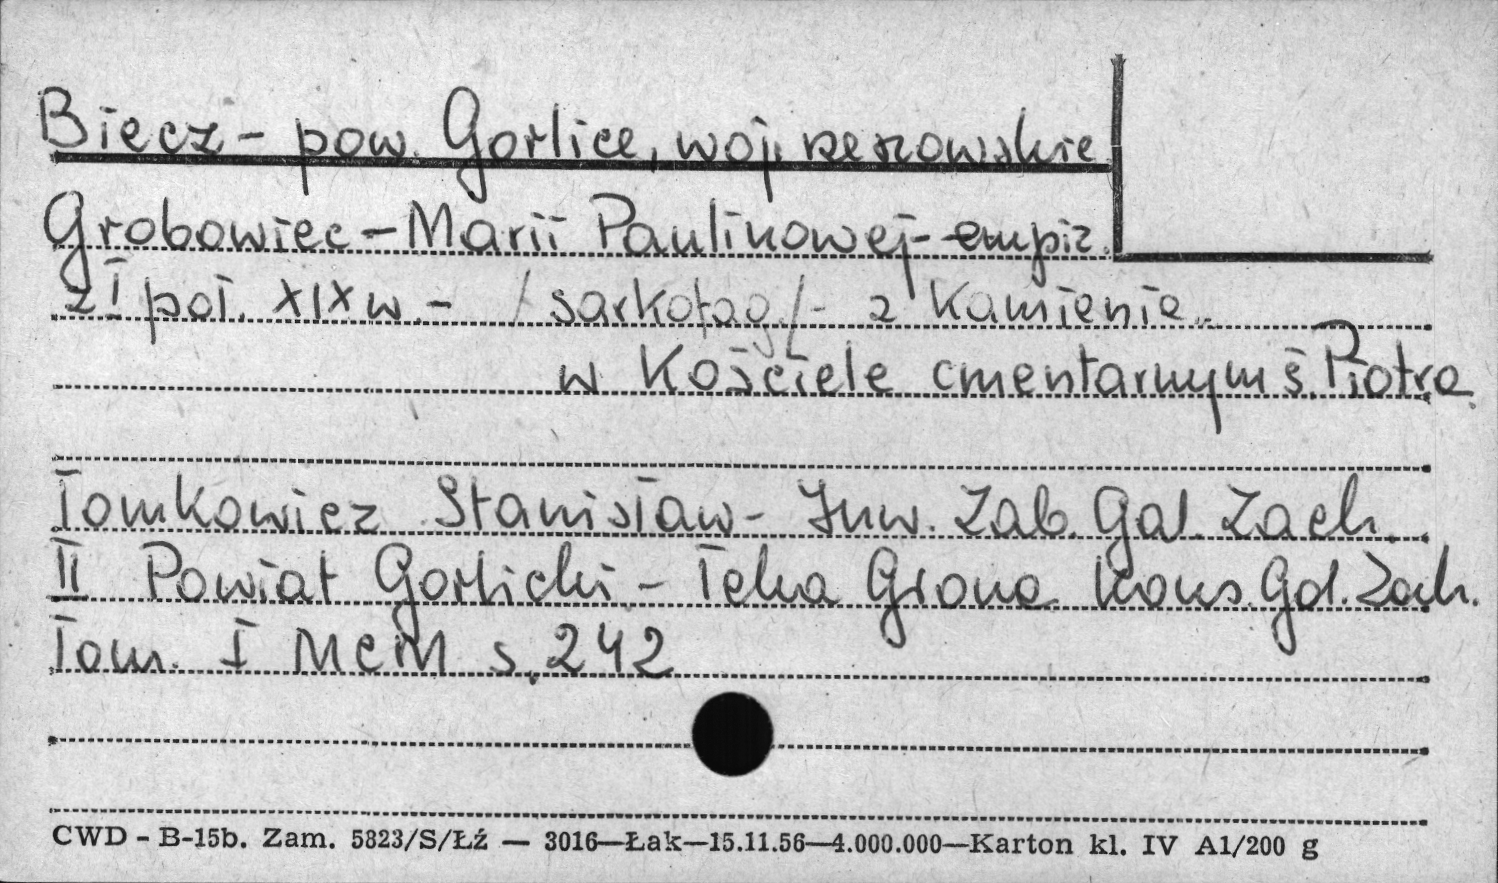 Biecz - pow. Gorlice, woj. rzeszowskie
Grobowiec - Marii Paulinowej - empir.
z I poł. XIX w. - /sarkofag/ - z kamienia
w Kościele cmentarnym ś. Piotra
Tomkowicz Stanisław - Inw. Zab. Gal. Zach.
II Powiat Gorlicki - Teka Grona Kons. Gal. Zach.
Tom. I MCM s. 242
CWD - B-15b. Zam. 5823/S/Łź — 3016—Łak—15.11.56—4.000.000—Karton kl. IV A1/200 g